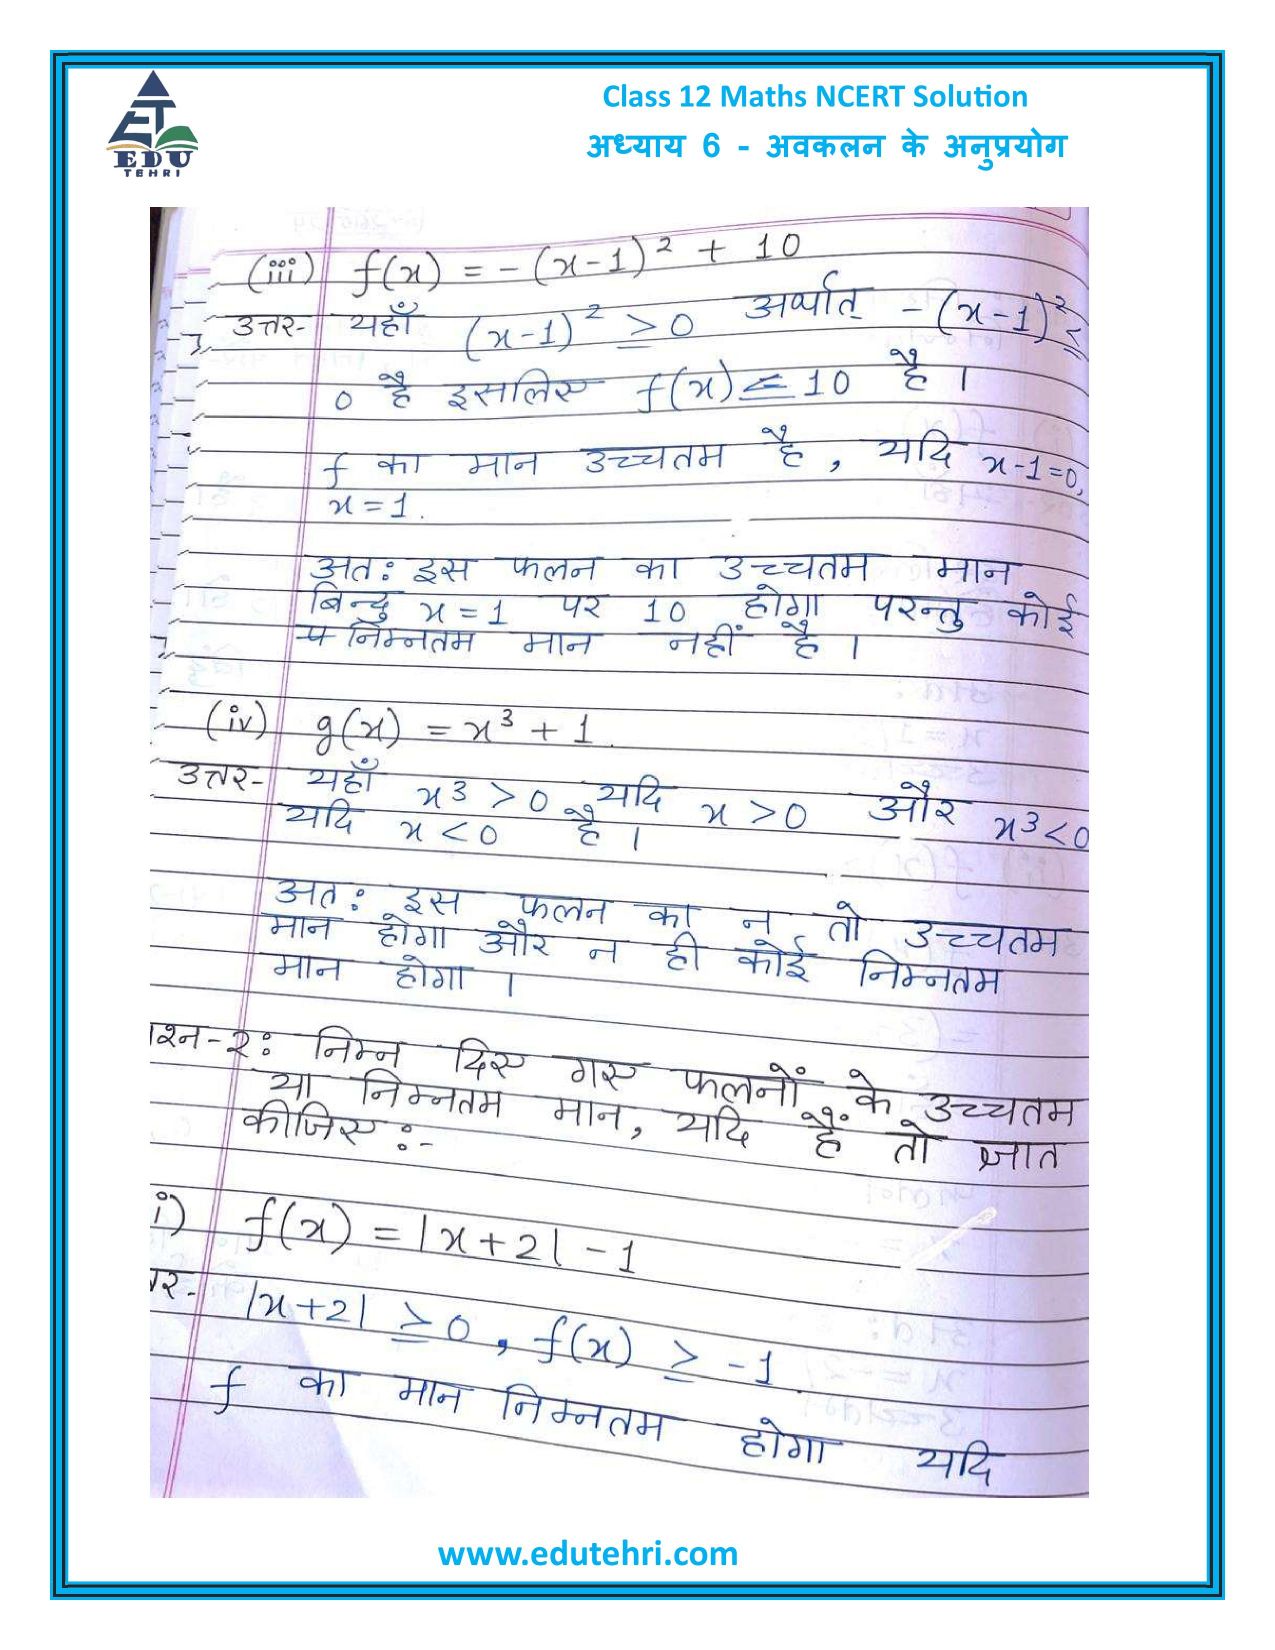 Class 12 Maths NCERT Solution
अध्याय 6 - अवकलन के अनुप्रयोग
ET
EDU
TEHRI
(iii) f(x) = -(x-1)² + 10
उत्तर- यहाँ (x-1)² ≥ 0 अर्थात् -(x-1)² ≤
0 है इसलिए f(x) ≤ 10 है ।
f का मान उच्चतम है, यदि x-1=0,
x = 1.
अतः इस फलन का उच्चतम मान
बिन्दु x = 1 पर 10 होगा परन्तु कोई
निम्नतम मान नहीं है ।
(iv) g(x) = x³ + 1.
उत्तर- यहाँ x³ > 0 यदि x > 0 और x³ < 0
यदि x < 0 है ।
अतः इस फलन का न तो उच्चतम
मान होगा और न ही कोई निम्नतम
मान होगा ।
प्रश्न-२: निम्न दिए गए फलनों के उच्चतम
या निम्नतम मान, यदि हैं तो ज्ञात
कीजिए :-
i) f(x) = |x+2| - 1
त्तर- |x+2| ≥ 0, f(x) ≥ -1.
f का मान निम्नतम होगा यदि
www.edutehri.com